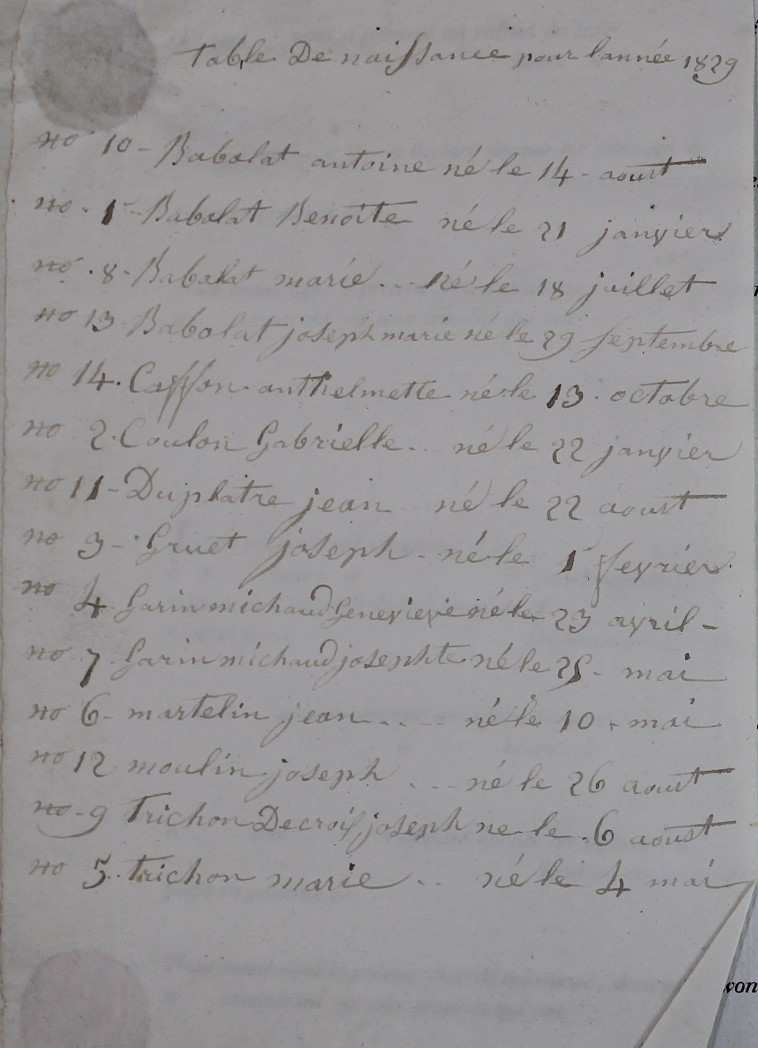 table De naissance pour lannée 1829
no 10 - Babolat antoine né le 14 - aoust
no - 1er - Babolat Benoite né le 21 janvier
no . 8 - Babolat marie ... né le 18 juillet
no 13 - Babolat joseph marie né le 29 septembre
no 14 . Caffon anthelmette né le 13 . octobre
no 2 . Coulon Gabrielle .. né le 22 janvier
no 11 - Duplatre jean né le 22 aoust
no 3 - Gruet joseph - né le 1er fevrier
no 4 - Garin michaud Genevieve né le 23 avril -
no 7 . Garin michaud josephte né le 25 - mai
no 6 - martelin jean .... né le 10 . mai
no 12 moulin joseph ... né le 26 aoust
no - 9 Trichon Decroix joseph ne le . 6 aoust
no 5 . Trichon marie .. né le 4 mai
von